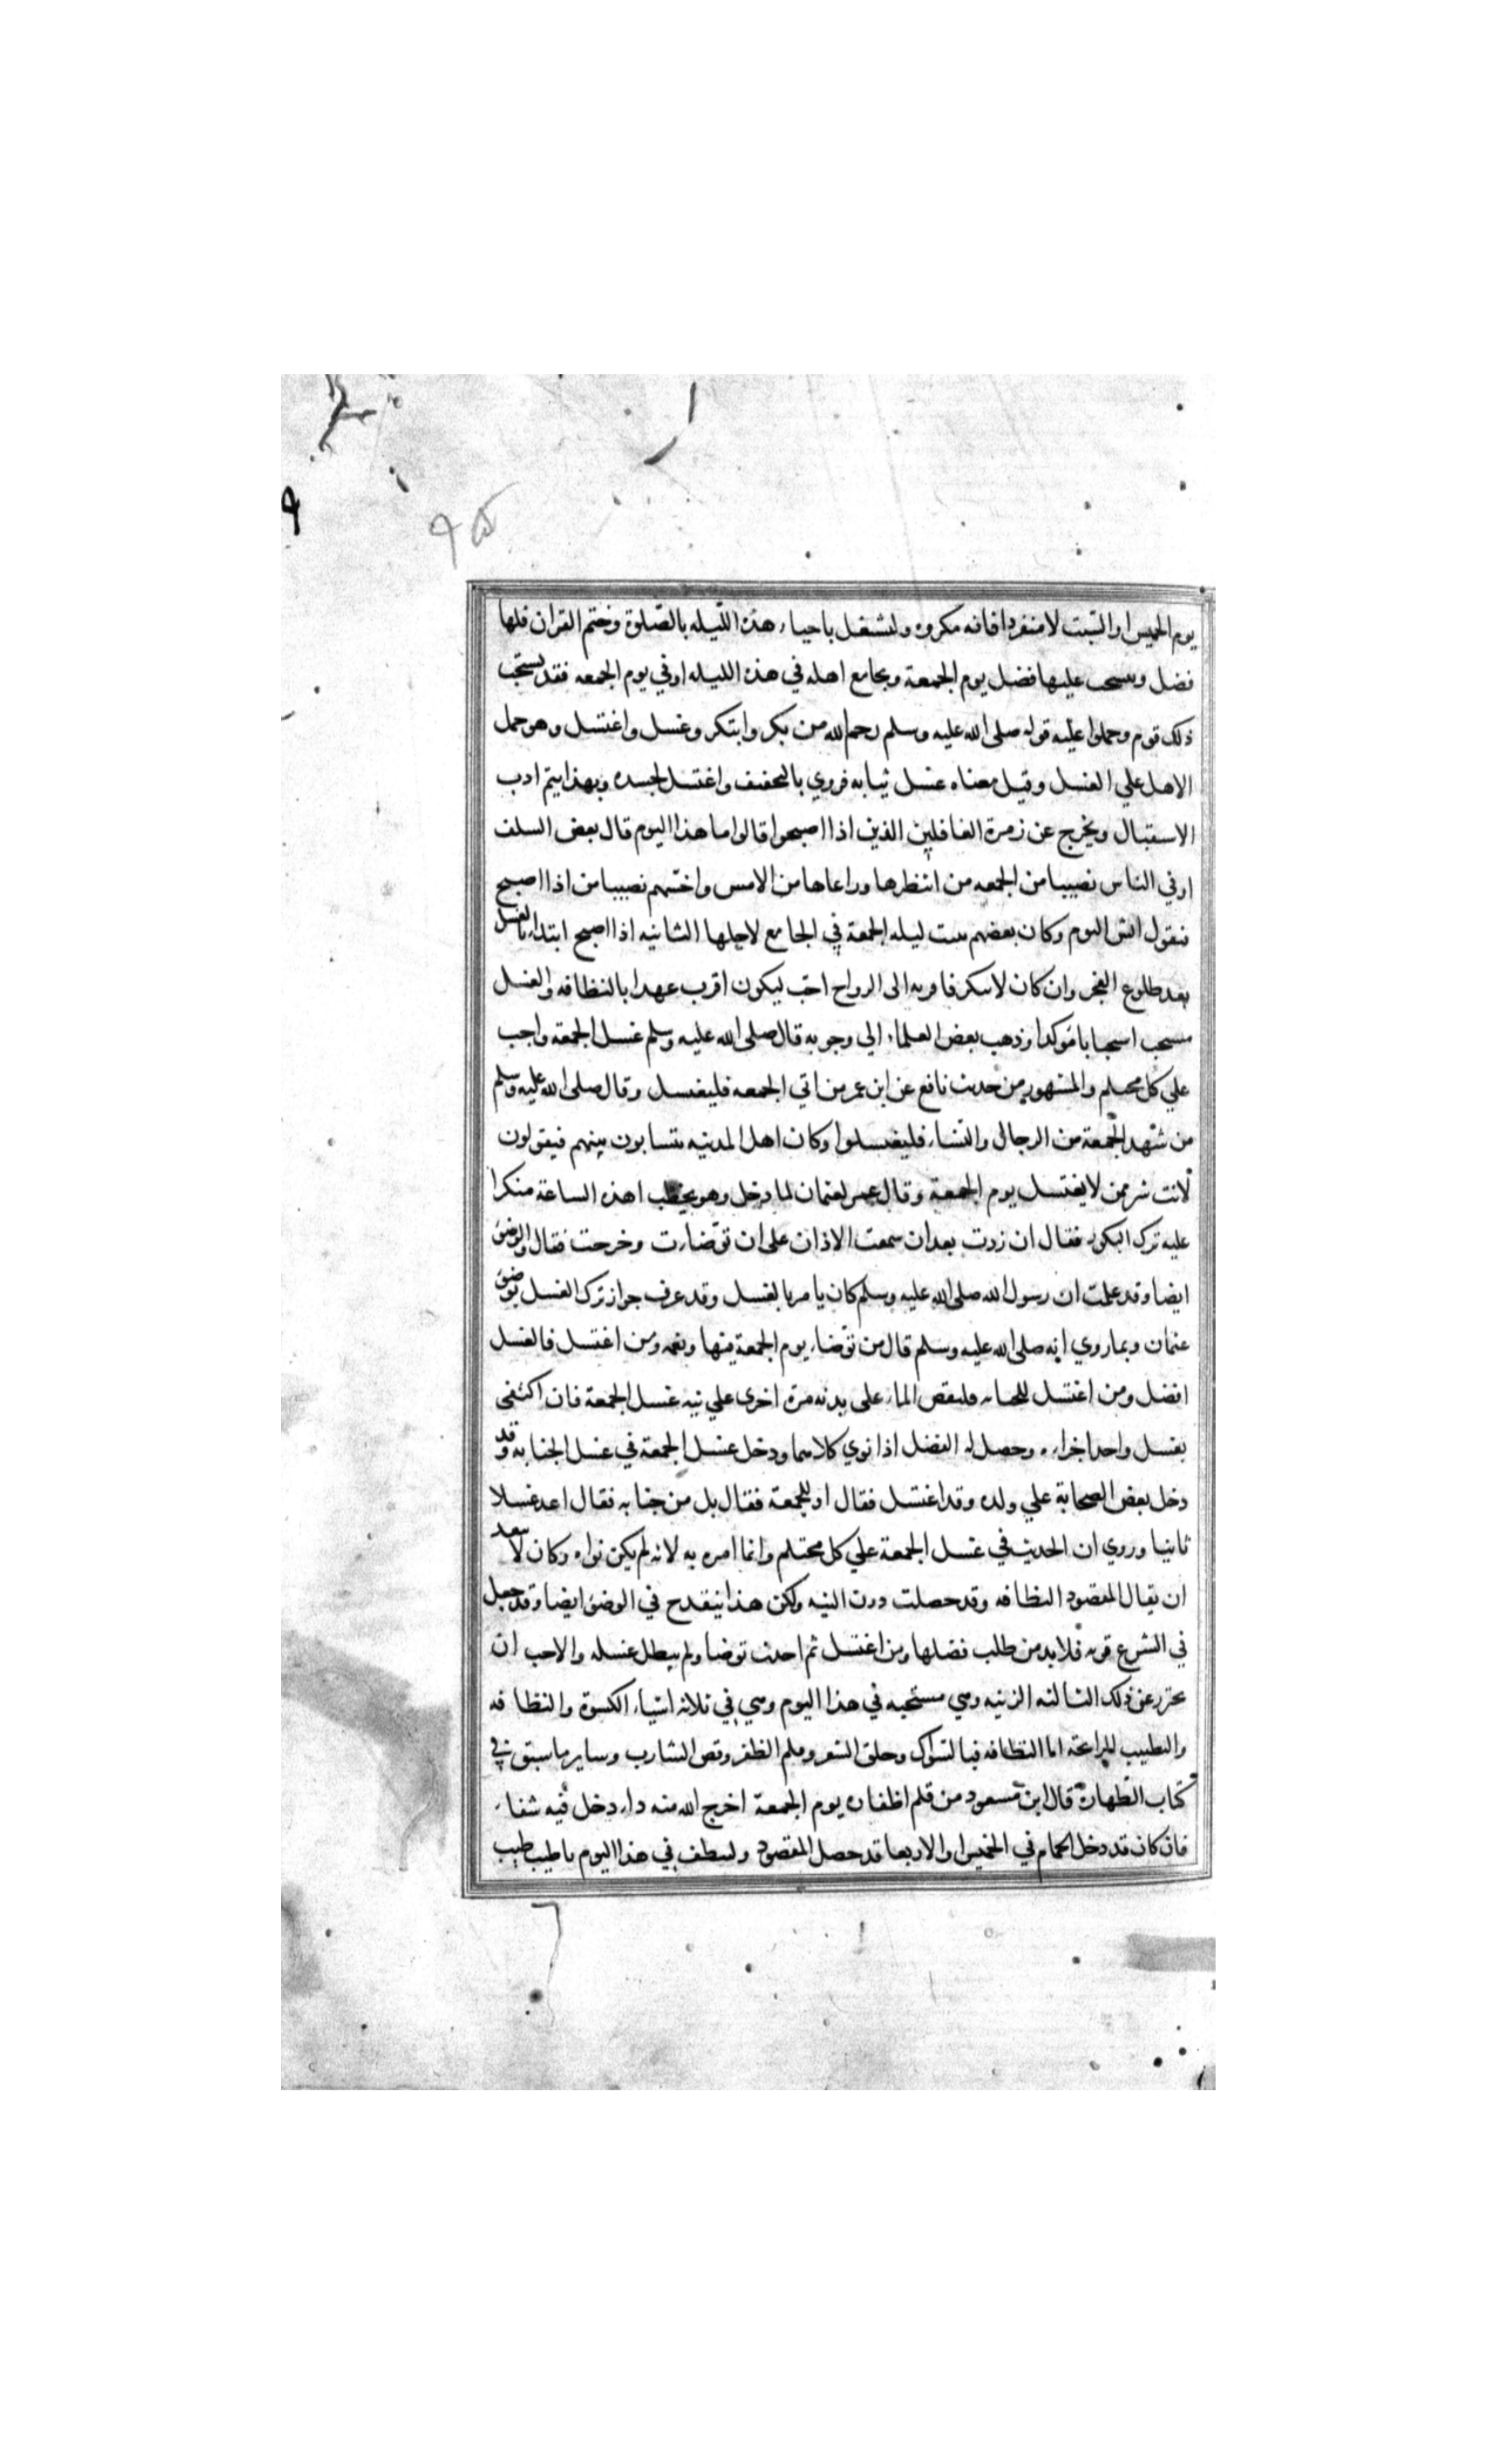 يوم الخميس او السبت لا منفردا فانه مكروه وليشتغل باحياء هذه الليله بالصلوة وختم القران فلها
فضل وينسحب عليها فضل يوم الجمعة ويجامع اهله في هذه الليله او في يوم الجمعه فقد يستحب
ذلك قوم وحملوا عليه قوله صلى الله عليه وسلم رحم الله من بكر وابتكر وغسل واغتسل وهو حمل
الاهل علي الغسل وقيل معناه غسل ثيابه فروي بالتخفيف واغتسل لجسده وبهذا يتم ادب
الاستقبال ويخرج عن زمرة الغافلين الذين اذا اصبحوا قالوا ما هذا اليوم قال بعض السلف
اوفي الناس نصيبا من الجمعه من انتظرها وراعاها من الامس واخسهم نصيبا من اذا اصبح
فيقول ايش اليوم وكان بعضهم يبيت ليله الجمعة في الجامع لاجلها الثانيه اذا اصبح ابتداء بالغسل
بعد طلوع الفجر وان كان لا يبكر فاقربه الى الرواح احب ليكون اقرب عهدا بالنظافه والغسل
مستحب استحبابا مؤكدا وذهب بعض العلماء الي وجوبه قال صلى الله عليه وسلم غسل الجمعة واجب
علي كل محتلم والمشهور من حديث نافع عن ابن عمر من اتي الجمعه فليغتسل وقال صلى الله عليه وسلم
من شهد الجمعة من الرجال والنساء فليغتسلوا وكان اهل المدينه يتسابون بينهم فيقولون
لانت شر ممن لا يغتسل يوم الجمعة وقال عمر لعثمان لما دخل وهو يخطب اهذه الساعة منكرا
عليه ترك البكور فقال ان زدت بعد ان سمعت الاذان على ان توضات وخرجت فقال والوضؤ
ايضا وقد علمت ان رسول الله صلى الله عليه وسلم كان يامر بالغسل وقد عرف جواز ترك الغسل بوضؤ
عثمان وبما روي انه صلى الله عليه وسلم قال من توضاء يوم الجمعة فبها ونعمه ومن اغتسل فالغسل
افضل ومن اغتسل للجنابه فليفض الماء على بدنه مرة اخرى علي نيه غسل الجمعة فان اكتفى
بغسل واحد اجزاءه وحصل له الفضل اذا نوي كلاهما ودخل غسل الجمعة في غسل الجنابه وقد
دخل بعض الصحابة علي ولده وقد اغتسل فقال اوللجمعة فقال بل من جنابه فقال اعد غسلا
ثانيا وروي ان الحديث في غسل الجمعة علي كل محتلم وانما امره به لانه لم يكن نواه وكان لا يبعد
ان يقال المقصود النظافه وقد حصلت دون النيه ولكن هذا ينقدح في الوضؤ ايضا وقد جعل
في الشرع قربه فلا بد من طلب فضلها ومن اغتسل ثم احدث توضا ولم يبطل غسله والاحب ان
يحترز عن ذلك الثالثه الزينه وهي مستحبه في هذا اليوم وهي في ثلاثه اشياء الكسوة والنظافه
والتطييب للرائحة اما النظافه فبالسواك وحلق الشعر وقلم الظفر وقص الشارب وساير ما سبق في
كتاب الطهارة قال ابن مسعود من قلم اظفاره يوم الجمعة اخرج الله منه داء ودخل فيه شفاء
فان كان قد دخل الحمام في الخميس او الاربعا قد حصل المقصود وليتطيب في هذا اليوم باطيب طيب